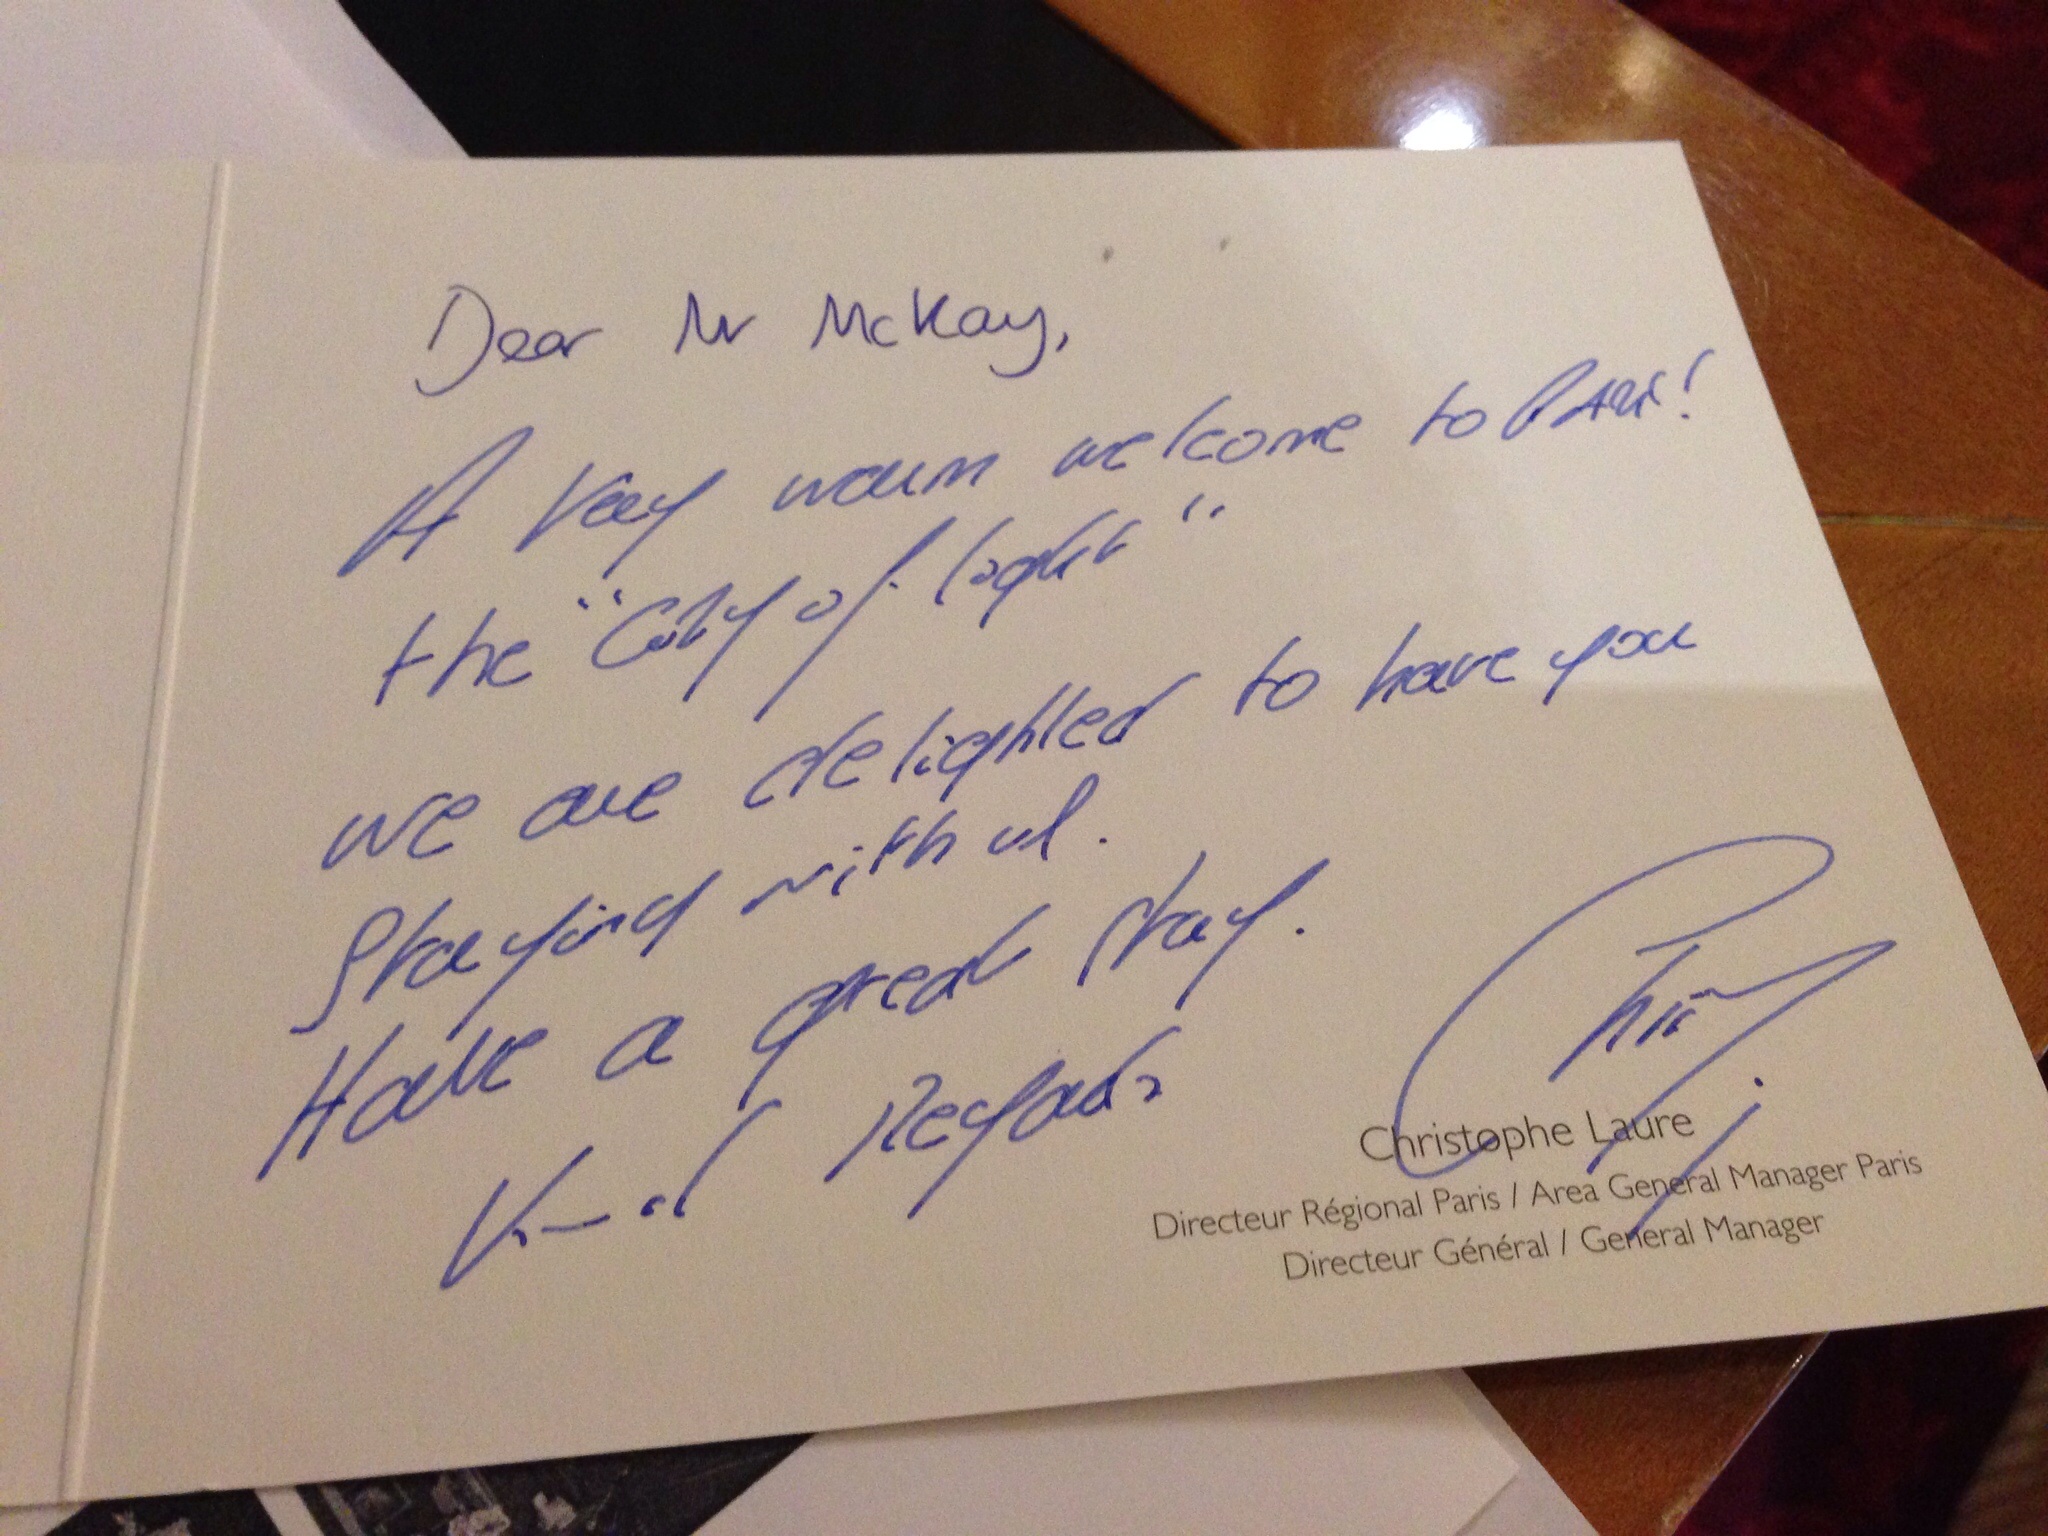 Dear Mr McKay,
A Very warm welcome to Paris!
the "City of light"
we are delighted to have you
Staying with us.
Have a great stay.
Kind Regards
Christophe Laure
Directeur Régional Paris / Area General Manager Paris
Directeur Général / General Manager